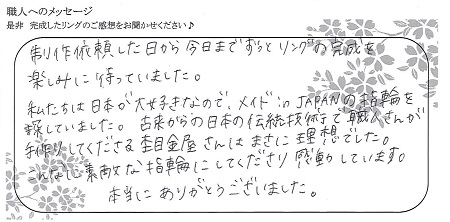 職人へのメッセージ
是非 完成したリングのご感想をお聞かせください♪
制作依頼した日から今日までずっとリングの完成を
楽しみに待っていました。
私たちは日本が大好きなので、メイド in JAPANの指輪を
探していました。古来からの日本の伝統技術で職人さんが
手作りしてくださる杢目金屋さんはまさに理想でした。
こんなに素敵な指輪にしてくださり感動しています。
本当にありがとうございました。